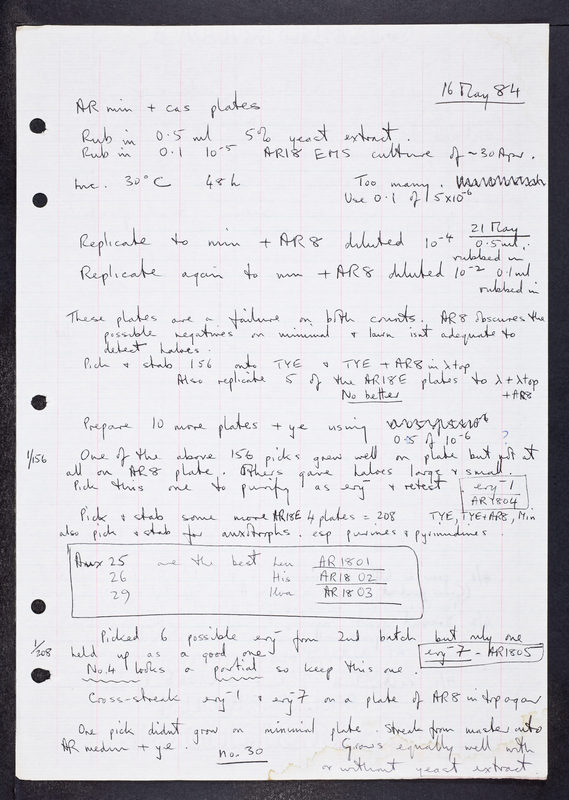 16 May 84
AR min + cas plates
Rub in 0.5 ml 5% yeast extract.
Rub in 0.1 10⁻⁵ AR18 EMS culture of ~30 Apr.
Inc. 30°C 48h Too many.
Use 0.1 of 5x10⁻⁶
21 May
Replicate to min + AR8 diluted 10⁻⁴ 0.5ml
rubbed in
Replicate again to min + AR8 diluted 10⁻² 0.1ml
rubbed in
These plates are a failure on both counts. AR8 obscures the
possible negatives on minimal & lawn isnt adequate to
detect haloes.
Pick & stab 156 onto TYE & TYE + AR8 in λtop
Also replicate 5 of the AR18E plates to λ + λtop
+ AR8
No better
Prepare 10 more plates + ye using
0.5 of 10⁻⁶
1/156 One of the above 156 picks grew well on plate but not at ?
all on AR8 plate. Others gave haloes large & small.
Pick this one to purify as ery⁻ & retest
ery⁻1
AR1804
Pick & stab some more AR18E 4 plates = 208 TYE, TYE+AR8, Min
also pick & stab for auxotrophs. esp purines & pyrimidines
Aux 25 are the best Leu AR1801
26 His AR1802
29 Ilva AR1803
1/208 Picked 6 possible ery⁻ from 2nd batch but only one
held up as a good one
ery⁻7 = AR1805
No.4 looks a partial so keep this one.
Cross-streak ery⁻1 & ery⁻7 on a plate of AR8 in top agar
One pick didnt grow on minimal plate. Streak from master onto
AR medium + ye. no. 30 Grows equally well with
or without yeast extract